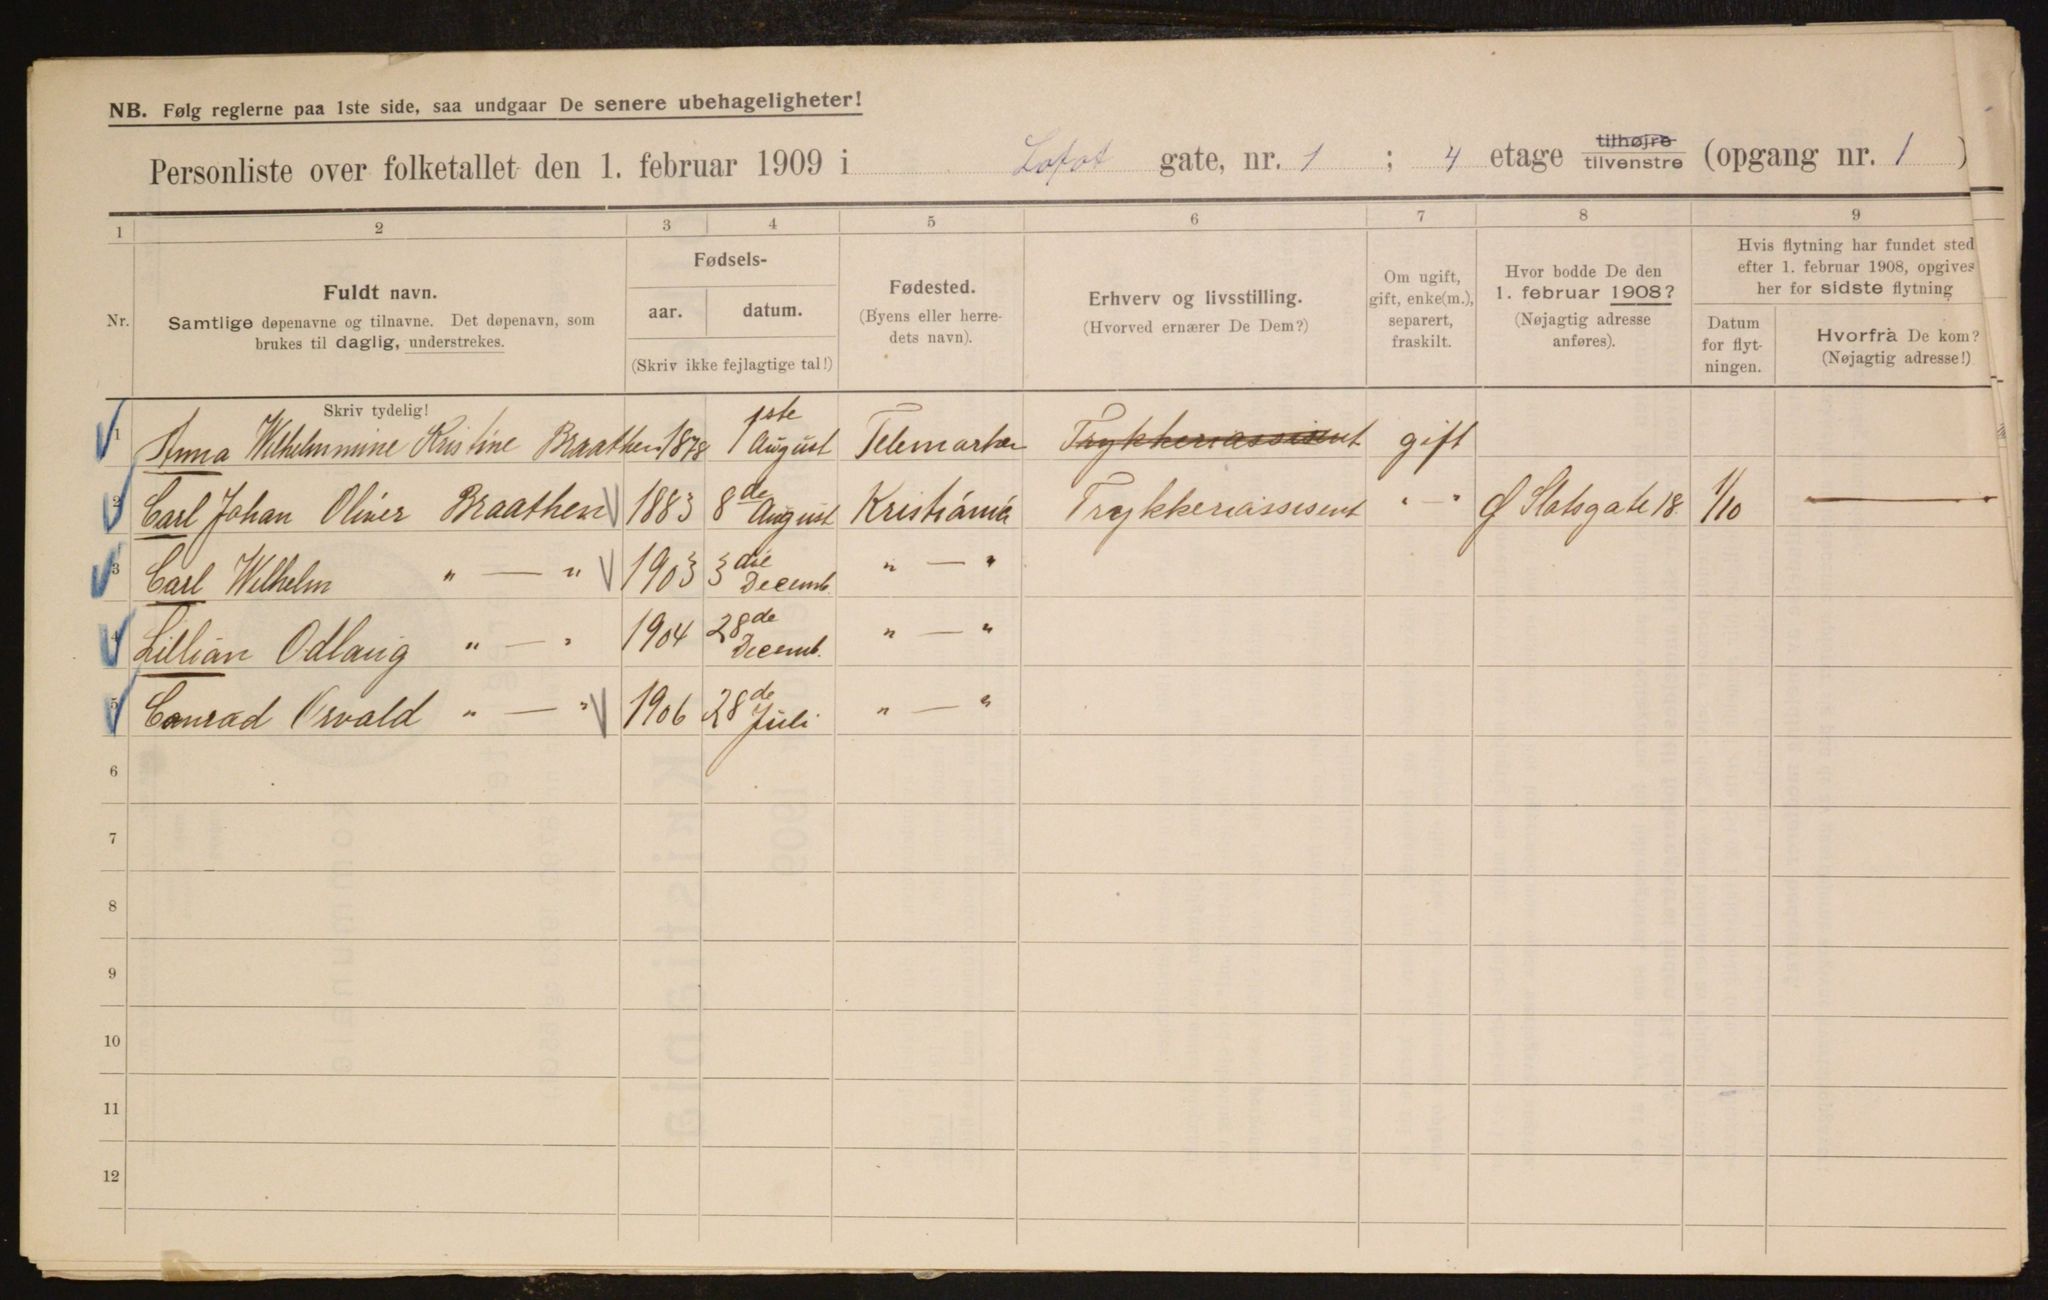 NB. Følg reglerne paa 1ste side, saa undgaar De senere ubehageligheter!
Personliste over folketallet den 1. februar 1909 i Lofot gate, nr. 1 ; 4 etage tilhøjre tilvenstre (opgang nr. 1 )
1 2 3 4 5 6 7 8 9
Nr.
Fuldt navn.
Samtlige døpenavne og tilnavne. Det døpenavn, som
brukes til daglig, understrekes.
Fødsels-
aar. datum.
(Skriv ikke fejlagtige tal!)
Fødested.
(Byens eller herre-
dets navn).
Erhverv og livsstilling.
(Hvorved ernærer De Dem?)
Om ugift,
gift, enke(m.),
separert,
fraskilt.
Hvor bodde De den
1. februar 1908?
(Nøjagtig adresse
anføres).
Hvis flytning har fundet sted
efter 1. februar 1908, opgives
her for sidste flytning
Datum
for flyt-
ningen.
Hvorfra De kom?
(Nøjagtig adresse!)
Skriv tydelig!
1 Anna Wilhelmmine Kristine Braathen 1878 1ste August Telemarken Trykkeriassisent gift
2 Carl Johan Oliver Braathen 1883 8de August Kristiánia Trykkeriassisent " — " Ø Slotsgate 18 1/10 —
3 Carl Wilhelm " — " 1903 3die Decemb. " — "
4 Lillian Odlaug " — " 1904 28de Decemb. " — "
5 Conrad Osvald " — " 1906 28de Juli " — "
6
7
8
9
10
11
12